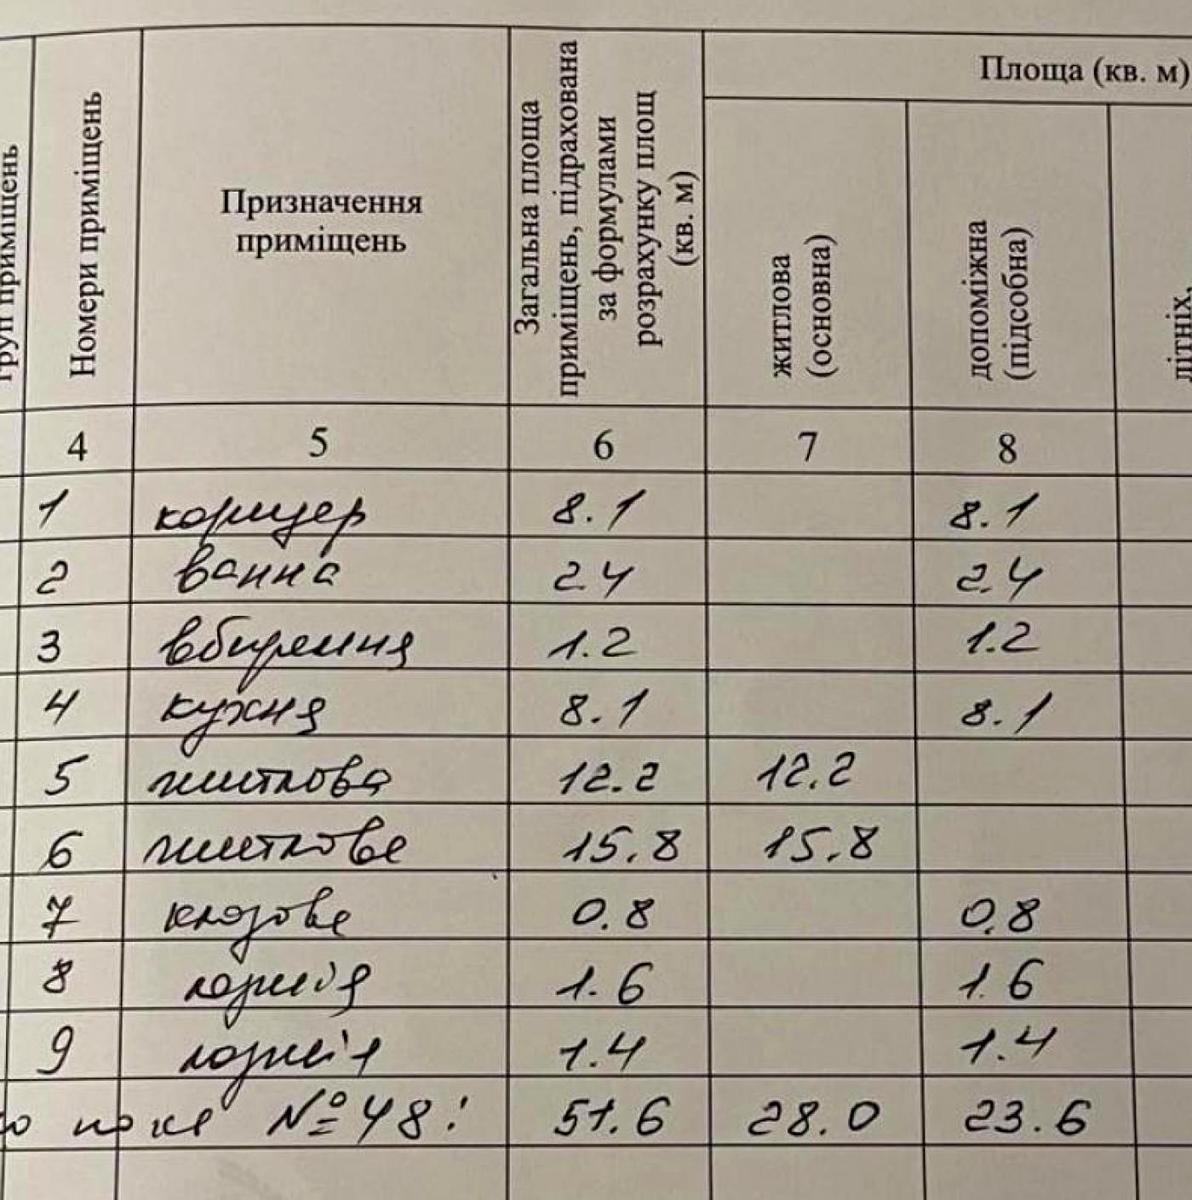 груп приміщень
Номери приміщень
Призначення
приміщень
Загальна площа
приміщень, підрахована
за формулами
розрахунку площ
(кв. м)
Площа (кв. м)
житлова
(основна)
допоміжна
(підсобна)
літніх,
4 5 6 7 8
1 коридер 8.1 8.1
2 ванна 2.4 2.4
3 вбирення 1.2 1.2
4 кухня 8.1 8.1
5 житлова 12.2 12.2
6 житлове 15.8 15.8
7 кладове 0.8 0.8
8 лоджія 1.6 1.6
9 лоджія 1.4 1.4
№ 48: 51.6 28.0 23.6